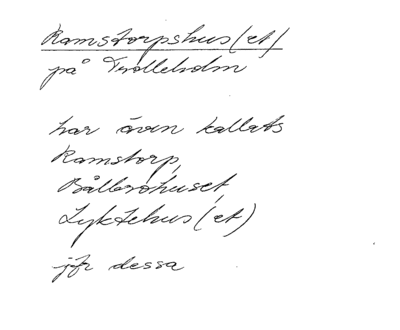 Ramstorpshus(et)
på Trolleholm
har även kallats
Ramstorp,
Bålbrohuset,
Lyktehus(et)
jfr dessa